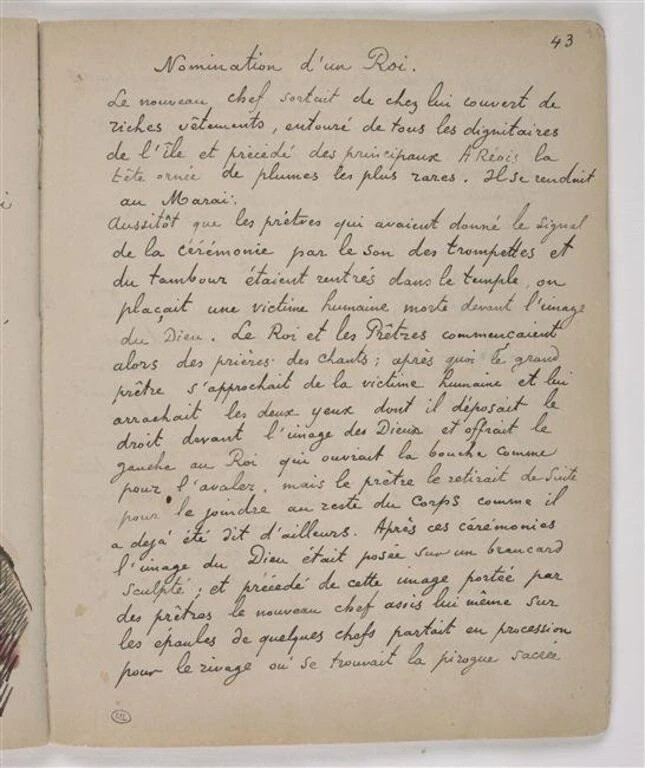 43
Nomination d'un Roi.
Le nouveau chef sortait de chez lui couvert de
riches vêtements, entouré de tous les dignitaires
de l'île et précédé des principaux Aréois la
tête ornée de plumes les plus rares. Il se rendait
au Marai.
Aussitôt que les prêtres qui avaient donné le signal
de la cérémonie par le son des trompettes et
du tambour étaient rentrés dans le temple, on
plaçait une victime humaine morte devant l'image
du Dieu. Le Roi et les Prêtres commencaient
alors des prières des chants; après quoi le grand
prêtre s'approchait de la victime humaine et lui
arrachait les deux yeux dont il déposait le
droit devant l'image des Dieux et offrait le
gauche au Roi qui ouvrait la bouche comme
pour l'avaler, mais le prêtre le retirait de suite
pour le joindre au reste du corps comme il
a dejá été dit d'ailleurs. Après ces cérémonies
l'image du Dieu était posée sur un brancard
sculpté; et précédé de cette image portée par
des prêtres le nouveau chef assis lui même sur
les épaules de quelques chefs partait en procession
pour le rivage où se trouvait la pirogue sacrée